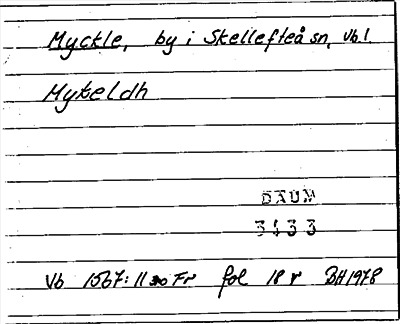 Myckle, by i Skellefteå sn, Vb l.
Mykeldh
DAUM
3433
Vb 1567:11 Fr fol 18 r BH 1978